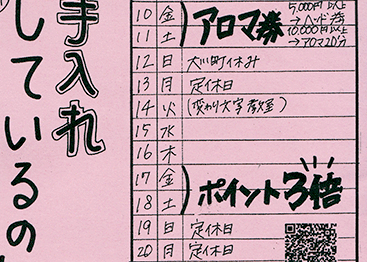 手入れ
しているの
10 金
11 土
アロマ券
5,000円以上
→ハンド券
10,000円以上
→アロマ20分
12 日 大川町休み
13 月 定休日
14 火 (変わり文字教室)
15 水
16 木
17 金
18 土
ポイント3倍
19 日 定休日
20 月 定休日